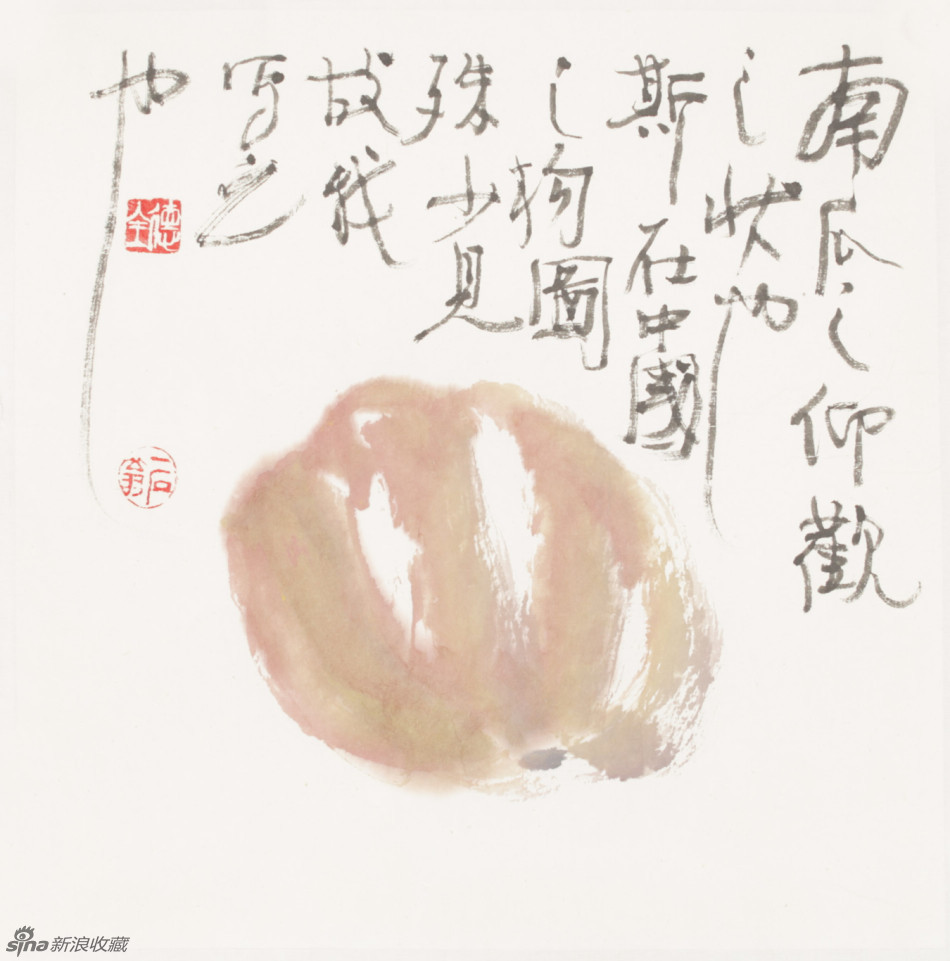 南瓜之仰觀
之狀也
斯在中國
之物圖
殊少見
故我
写之
也
德全
石翁
sina新浪收藏